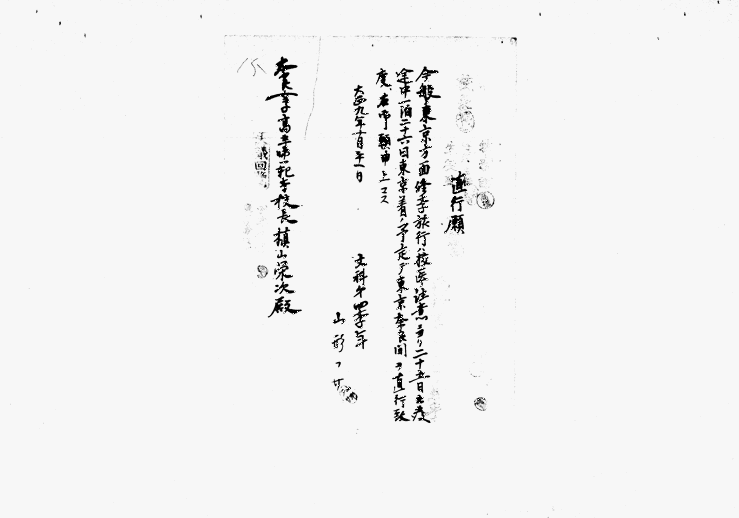 直行願
今般東京方面修学旅行ハ校医ノ注意ニヨリ二十五日出発
途中一泊二十六日東京着ノ予定デ東京奈良間ヲ直行致
度、右御願申上マス
大正九年十月二十一日
文科第四学年
山形フサ
奈良女子高等師範学校長槙山栄次殿